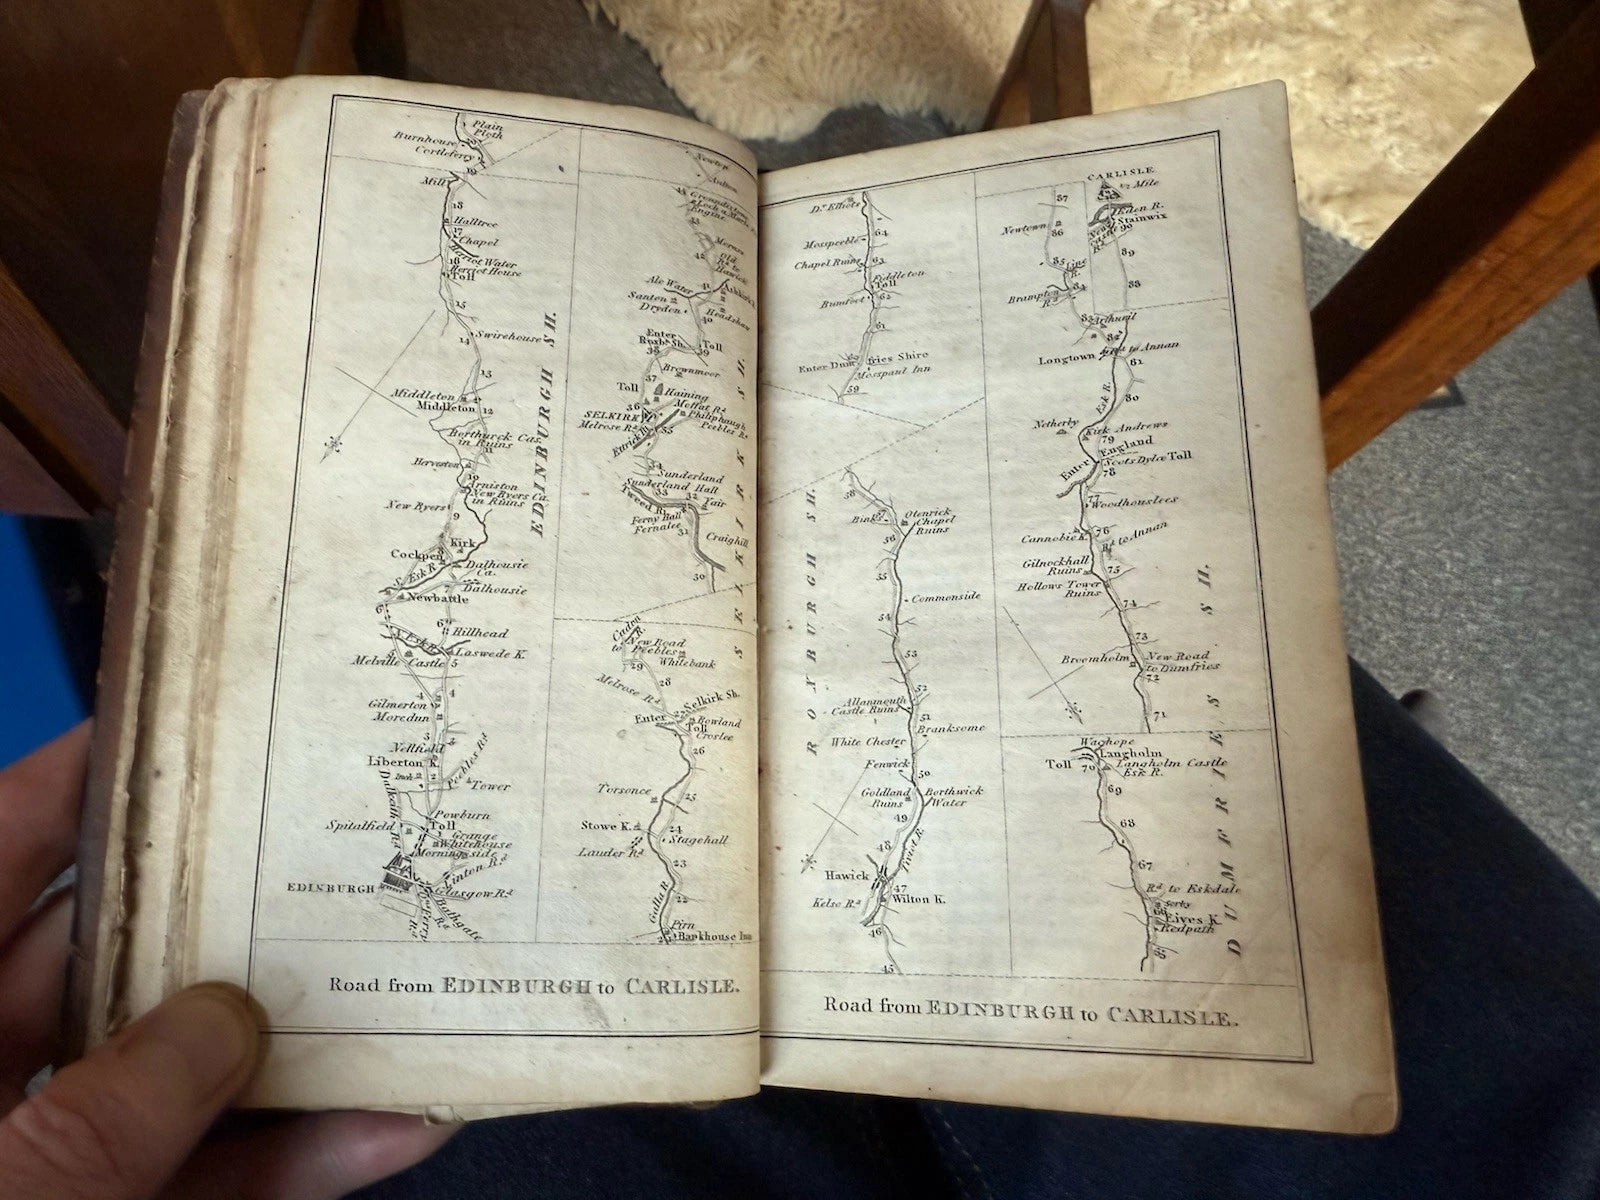 Plain
Ploth
Burnhouse
Cortleferry
19
Mill
18
Halltree
17
Chapel
Heriot Water
16
Heriot House
Toll
15
Swirehouse
14
13
Middleton
Middleton
12
Borthwick Cas.
in Ruins
11
Herveston
10
Arniston
New Byers Ca.
in Ruins
New Byers
9
Kirk
8
Cockpen
Dalhousie
Ca.
S. Esk R.
7
Dalhousie
Newbattle
6
6
Hillhead
N. Esk R.
Laswede K.
Melville Castle
5
5
4
4
Gilmerton
Moredun
3
Nellfield
2
Liberton K.
Peebles Rd.
2
Tower
Dalkeith Rd.
Powburn
Toll
Spitalfield
Grange
Whitehouse
Morningside
Linton Rd.
EDINBURGH
Glasgow Rd.
Bathgate
Rd.
Ferry
Rd.
EDINBURGH SH.
Newton
44
43
Loch
Engine
Moross
Old
Rd. to
Hawick
42
Ale Water
41
Santon
Dryden
Headshaw
40
Enter
Roxb. Sh.
Toll
38
39
Brownmoor
37
Toll
Haining
Moffat Rd.
36
SELKIRK
Philiphaugh
Melrose Rd.
Peebles Rd.
35
Etrick R.
34
Sunderland
Sunderland Hall
33
32
Yair
Tweed R.
Ferny Hall
Fernalee
31
Craighill
30
SELKIRK SH.
Cadon
R.
New Road
to Peebles
Whitebank
29
28
Melrose Rd.
Selkirk Sh.
Enter
Bowland
Toll
Croslee
26
Torsonce
25
Stowe K.
24
Stagehall
Lauder Rd.
23
22
Galla R.
Pirn
Barkhouse Inn
Road from EDINBURGH to CARLISLE.
Dr. Elliots
64
Mosspeeble
Chapel Ruins
63
Fiddleton
Toll
Bumfoot
62
61
60
Enter Dumfries Shire
Mosspaul Inn
59
58
57
Binks
Otenrick
Chapel
Ruins
56
55
Commonside
54
53
52
Allanmouth
Castle Ruins
51
Branksome
White Chester
Fenwick
50
Goldland
Ruins
Borthwick
Water
49
Tiviot R.
48
Hawick
47
Wilton K.
Kelso Rd.
46
45
ROXBURGH SH.
CARLISLE
1/2 Mile
87
Eden R.
Stainwix
Newtown
86
90
New
Castle
Rd.
89
85
Line
R.
88
Brampton
Rd.
84
83
Arthuril
82
Longtown
Rd. to Annan
81
Esk R.
80
Netherby
Kirk Andrews
79
Enter England
Scots Dyke Toll
78
77
Woodhouslees
76
Cannobie K.
Rd. to Annan
Gilnockhall
Ruins
75
Hollows Tower
Ruins
74
73
Broomholm
New Road
to Dumfries
72
71
Wachope
Langholm
Toll
70
Langholm Castle
Esk R.
69
68
67
Rd. to Eskdale
Sorby
66
Eives K.
Redpath
65
DUMFRIES SH.
Road from EDINBURGH to CARLISLE.